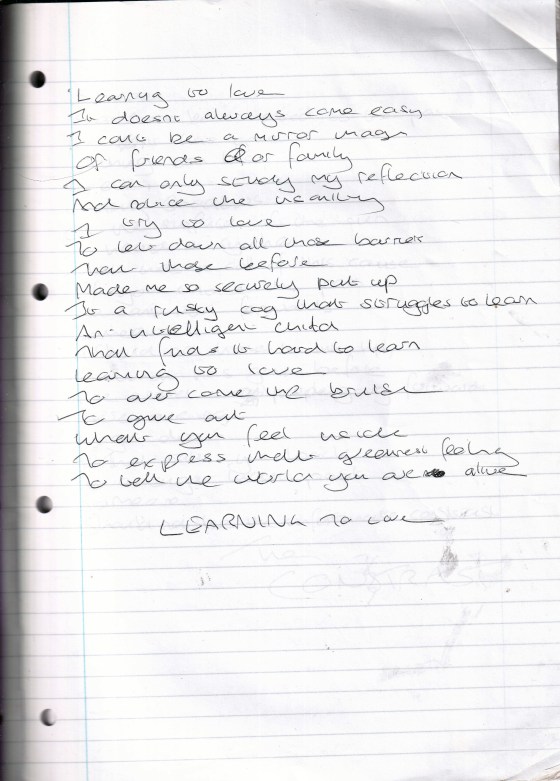 Learning to love
It doesnt always come easy
I could be a mirror image
Of friends or family
I can only study my reflection
And notice the
I try to love
To let down all those barriers
That those before
Made me so securely put up
It a rusty cog that struggles to learn
An intelligent child
That finds it hard to learn
Learning to love
To over come the
To give out
What you feel inside
To express that greatest feeling
To tell the world you are alive
LEARNING To Love